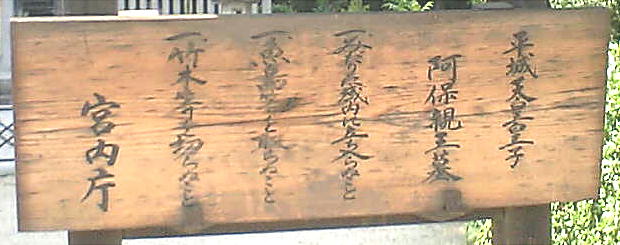 平城天皇皇子
阿保親王墓
一、みだりに域内に立ち入らぬこと
一、魚鳥等を取らぬこと
一、竹木等を切らぬこと
宮内庁